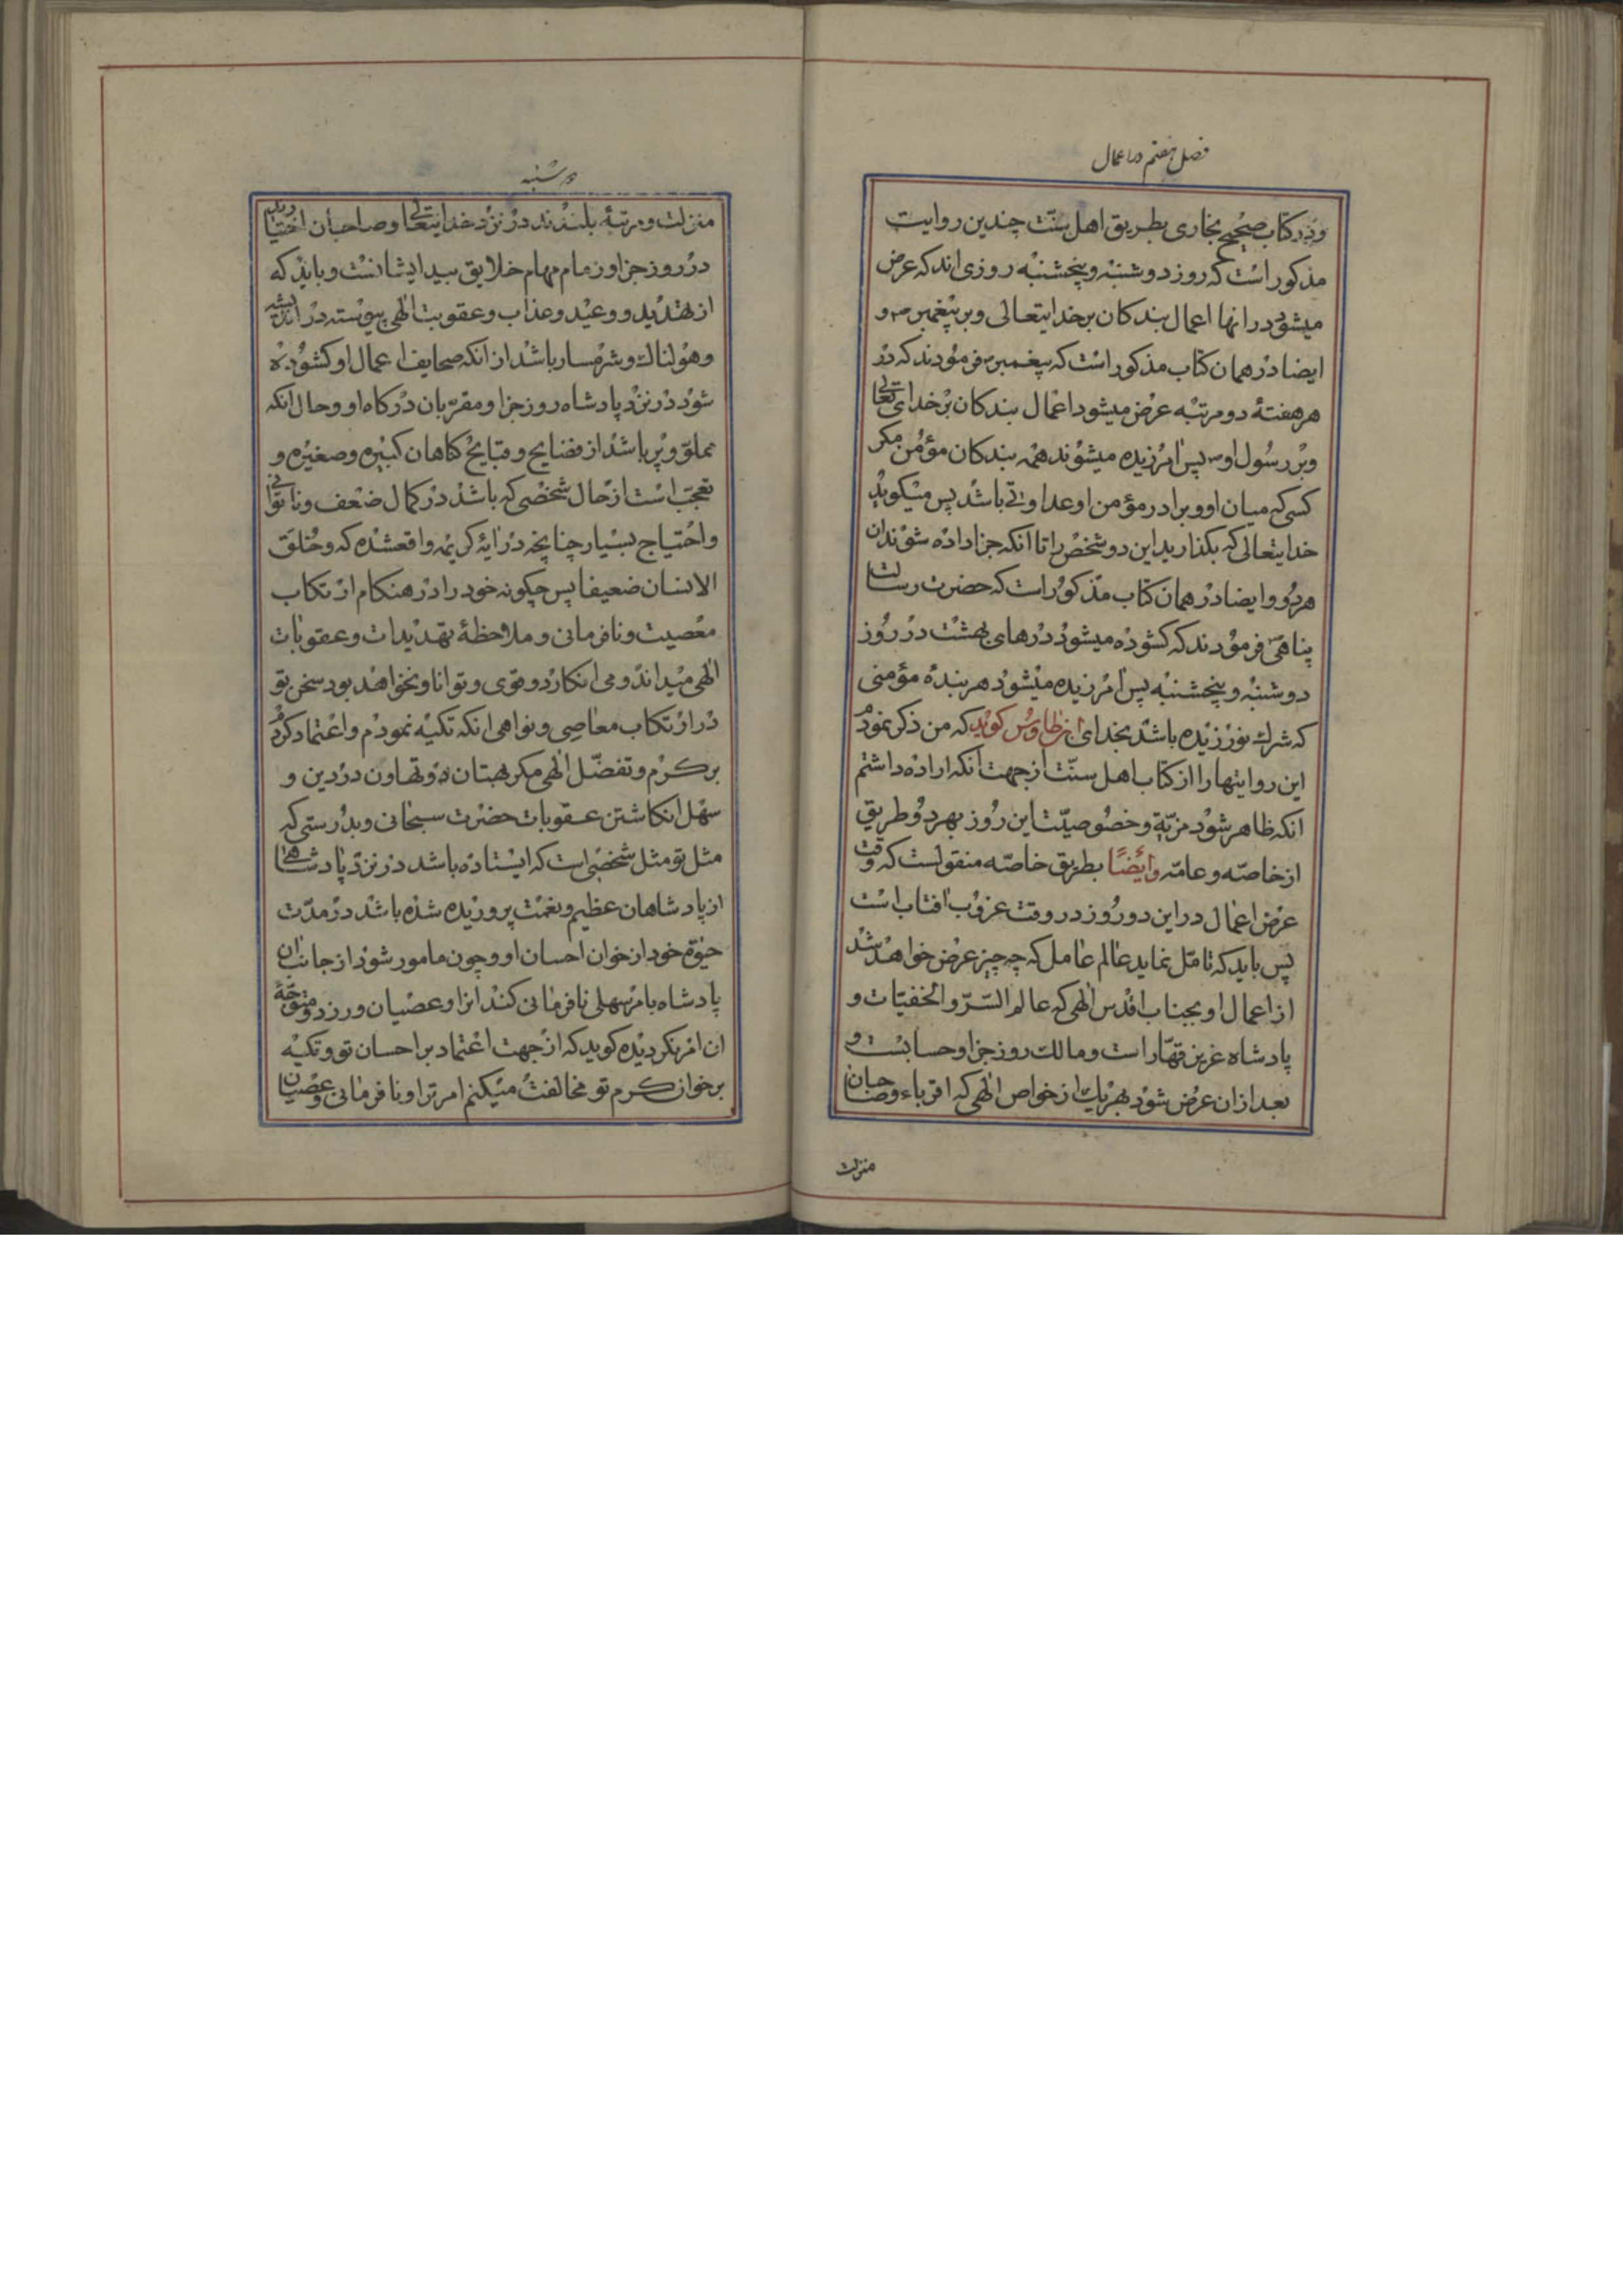 فصل هفتم در اعمال
ودر کتاب صحیح بخاری بطریق اهل سنّت چندین روایت
مذکور است که روز دوشنبه وپنجشنبه روزی اند که عرض
میشود در انها اعمال بندکان بر خدایتعالی وبر پیغمبر ص و
ایضا در همان کتاب مذکور است که پیغمبر ص فرمودند که در
هر هفتۀ دو مرتبه عرض میشود اعمال بندکان بر خدای تعالی
وبر رسول او ص پس امرزیده میشوند همه بندکان مؤمن مکر
کسی که میان او وبرادر مؤمن او عداوتی باشد پس میکوید
خدایتعالی که بکذارید این دو شخص را تا انکه جزا داده شوند ان
هردو وایضا در همان کتاب مذکور است که حضرت رسالت
پناهی ص فرمودند که کشوده میشود درهای بهشت در روز
دوشنبه وپنجشنبه پس امرزیده میشود هر بندۀ مؤمنی
که شرک نورزیده باشد بخدای ابن طاوس کوید که من ذکر نمودم
این روایتها را از کتاب اهل سنّت از جهت انکه اراده داشتم
انکه ظاهر شود مزیّة وخصوصیّت این روز بهر دو طریق
از خاصّه وعامّه وایضًا بطریق خاصّه منقولست که وقت
عرض اعمال در این دو روز در وقت غروب افتاب است
پس باید که تامّل نماید عالم عامل که چه چیز عرض خواهد شد
از اعمال او بجناب اقدس الهی که عالم السّرّ والخفیّات و
پادشاه عزیز قهّار است ومالک روز جزا وحسابست و
بعد از ان عرض شود بهریک از خواص الهی که اقرباء وصاحبان
منزلت
دوشنبه
منزلت ومرتبۀ بلندند در نزد خدایتعالی وصاحبان اختیارند
در روز جزا وزمام مهام خلایق بید ایشانست وباید که
از تهدید ووعید وعذاب وعقوبت الهی پیوسته در اندیشه
وهولناک وشرمسار باشد از انکه صحایف اعمال او کشوده
شود در نزد پادشاه روز جزا ومقرّبان درکاه او وحال انکه
مملوّ وپر باشد از فضایح وقبایح کناهان کبیره وصغیره و
تعجب است از حال شخصی که باشد در کمال ضعف وناتوانی
واحتیاج بسیار چنانچه در ایۀ کریمه واقعشده که وخلق
الانسان ضعیفا پس چکونه خود را در هنکام ارتکاب
معصیت ونافرمانی وملاحظۀ تهدیدات وعقوبات
الهی میداند ومی انکارد وقوی وتوانا ونخواهد بود سخن تو
در ارتکاب معاصی ونواهی انکه تکیه نمودم واعتماد کردم
بر کرم وتفضّل الهی مکر بهتان وتهاون در دین و
سهل انکاشتن عقوبات حضرت سبحانی وبدرستی که
مثل تو مثل شخصی است که ایستاده باشد در نزد پادشاهی
از پادشاهان عظیم وبنعمت پروریده شده باشد در مدّت
حیوة خود از خوان احسان او وچون مامور شود از جانب ان
پادشاه بامر سهلی نافرمانی کند انرا وعصیان ورزد ومتوجّه
ان امر نکردیده کوید که از جهت اعتماد بر احسان تو وتکیه
بر خوان کرم تو مخالفت میکنم امر ترا ونافرمانی وعصیان